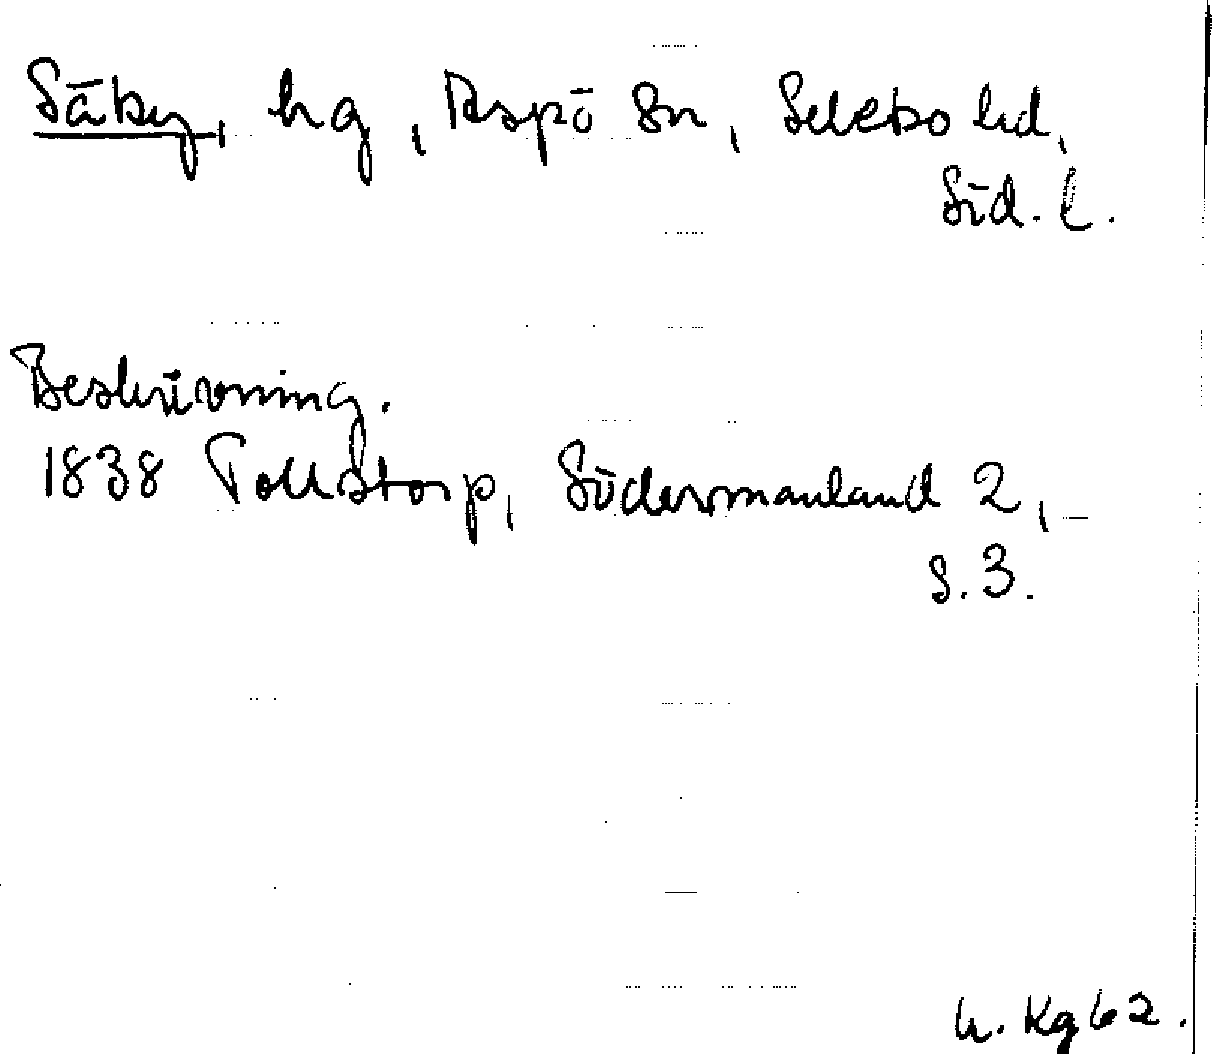 Säby, hg, Aspö Sn, Selebo hd,
Söd. l.
Beskrivning.
1838 Tollstorp, Södermanland 2,
s. 3.
U. Kg 62.